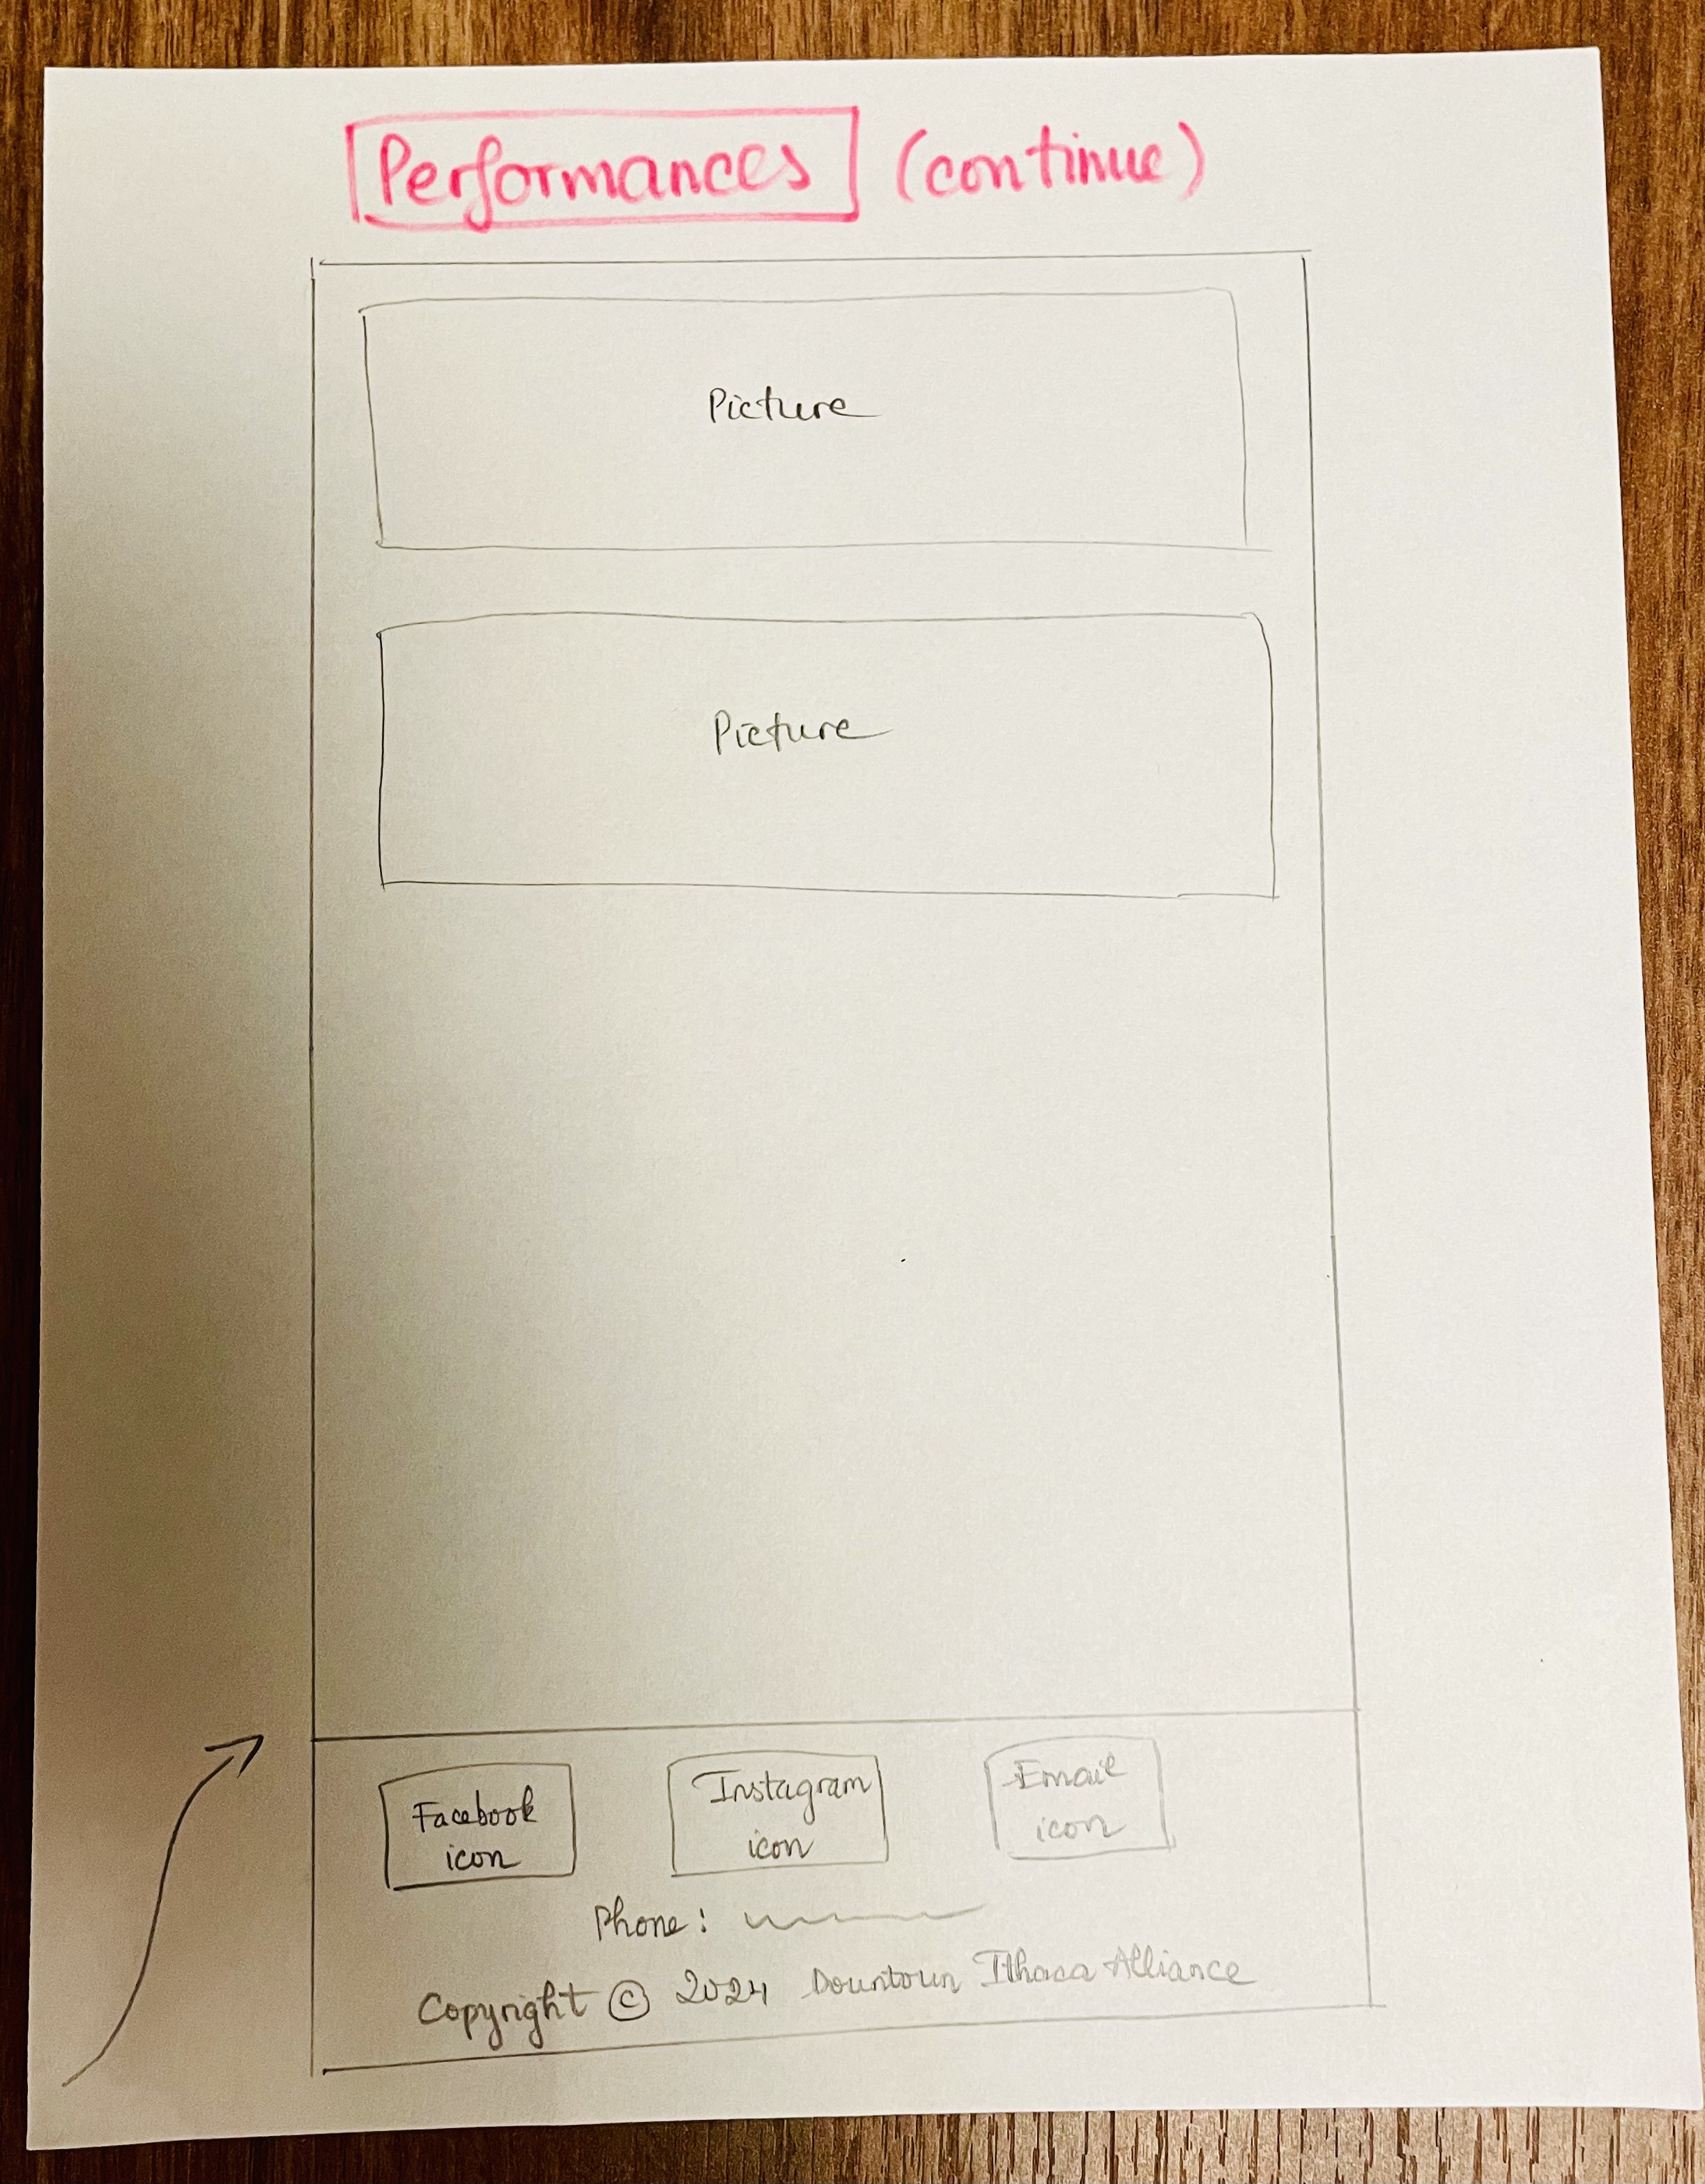 Performances (continue)
Picture
Picture
Facebook icon
Instagram icon
Email icon
Phone:
Copyright © 2024 Downtown Ithaca Alliance